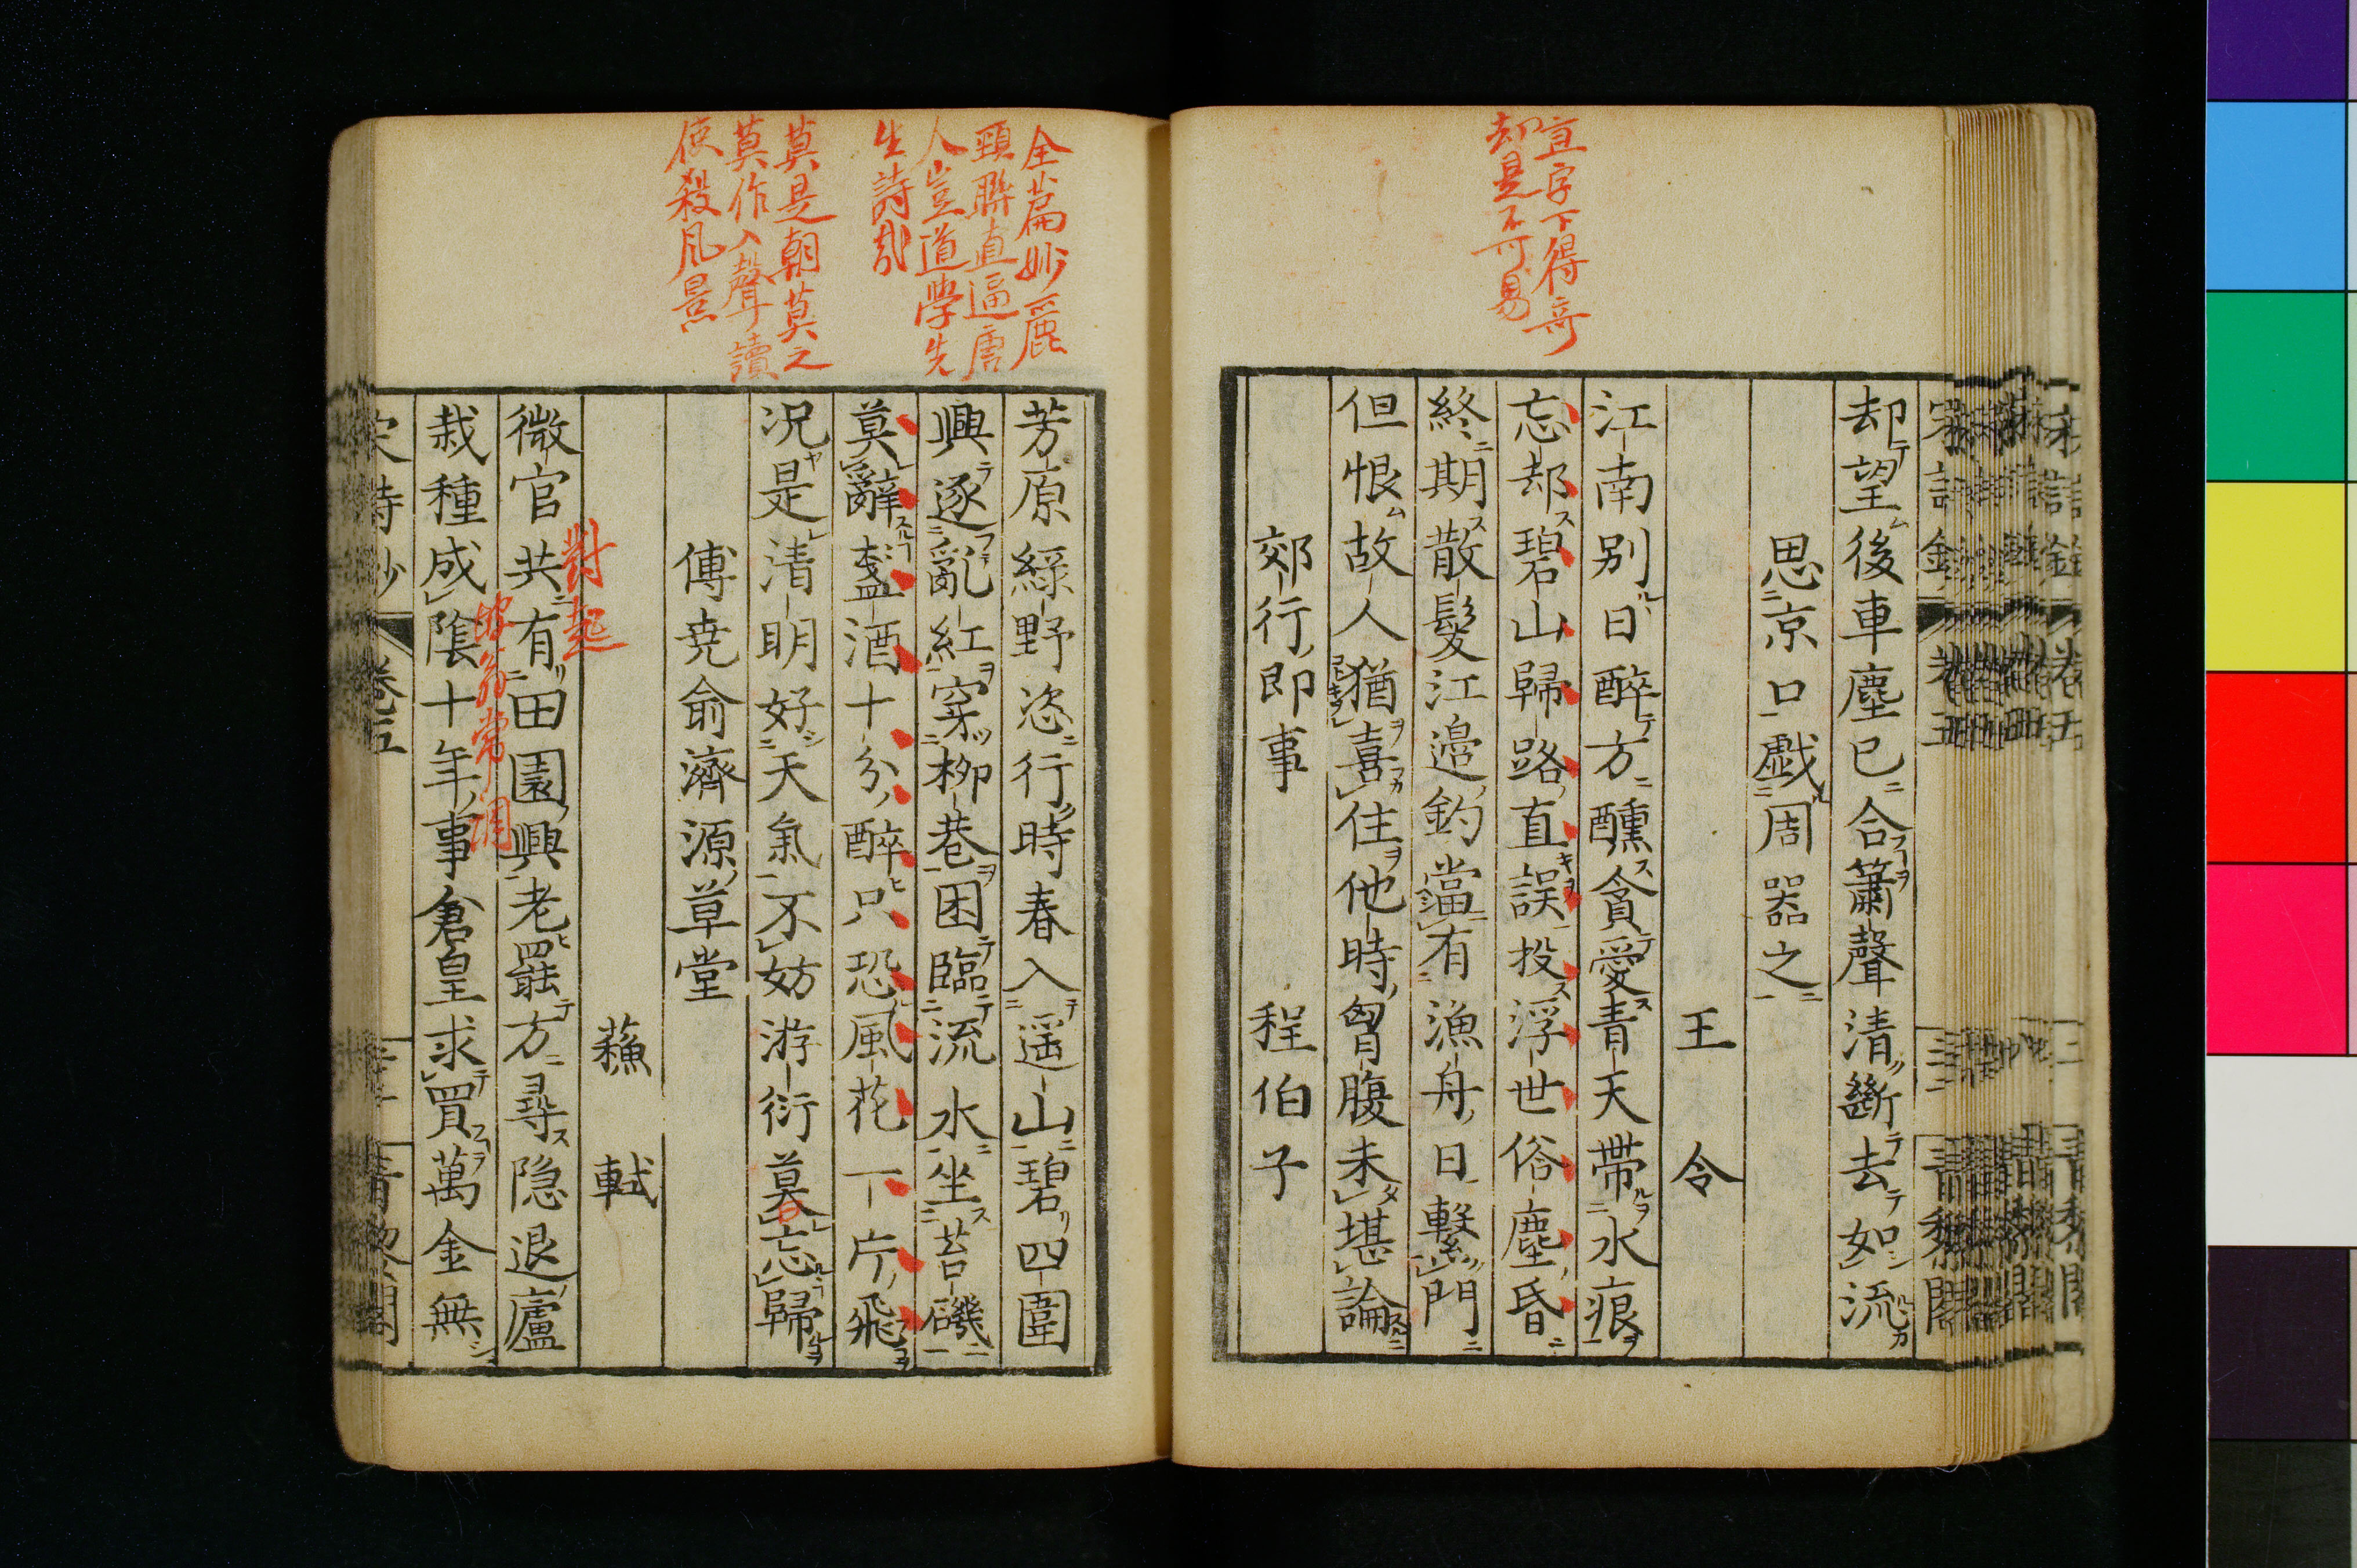 直字下得奇
却是不可易
却望後車塵已合簫聲清斷去如流
思京口戯周器之
王令
江南別日醉方醺貪愛青天帶水痕
忘却碧山歸路直誤投浮世俗塵昏
終期散髮江邉釣當有漁舟日繫門
但恨故人猶喜住他時胷腹未堪論
郊行即事
程伯子
全篇妙麗
頸聯直逼唐
人豈道學先
生詩哉
莫是朝莫之
莫作入聲讀
便殺風景
芳原綠野恣行時春入遥山碧四圍
興逐亂紅穿柳巷困臨流水坐苔磯
莫辭盞酒十分醉只恐風花一片飛
况是清明好天氣不妨游衍莫忘歸
傅堯俞濟源草堂
蘇軾
微官共有田園興老罷方尋隐退廬
栽種成隂十年事倉皇求買萬金無
對起
坡翁常調
卷五